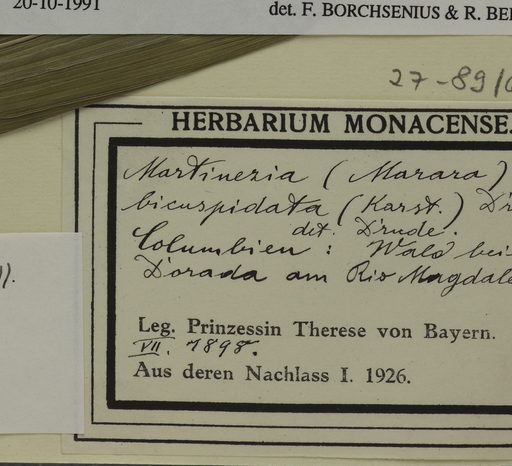 20-10-1991
det. F. BORCHSENIUS & R. BE
27-89/
HERBARIUM MONACENSE.
Martinezia (Marara)
bicuspidata (Karst.) Dr
det. Drude.
Columbien: Wald bei
Dorada am Rio Magdale
Leg. Prinzessin Therese von Bayern.
VII. 1898.
Aus deren Nachlass I. 1926.